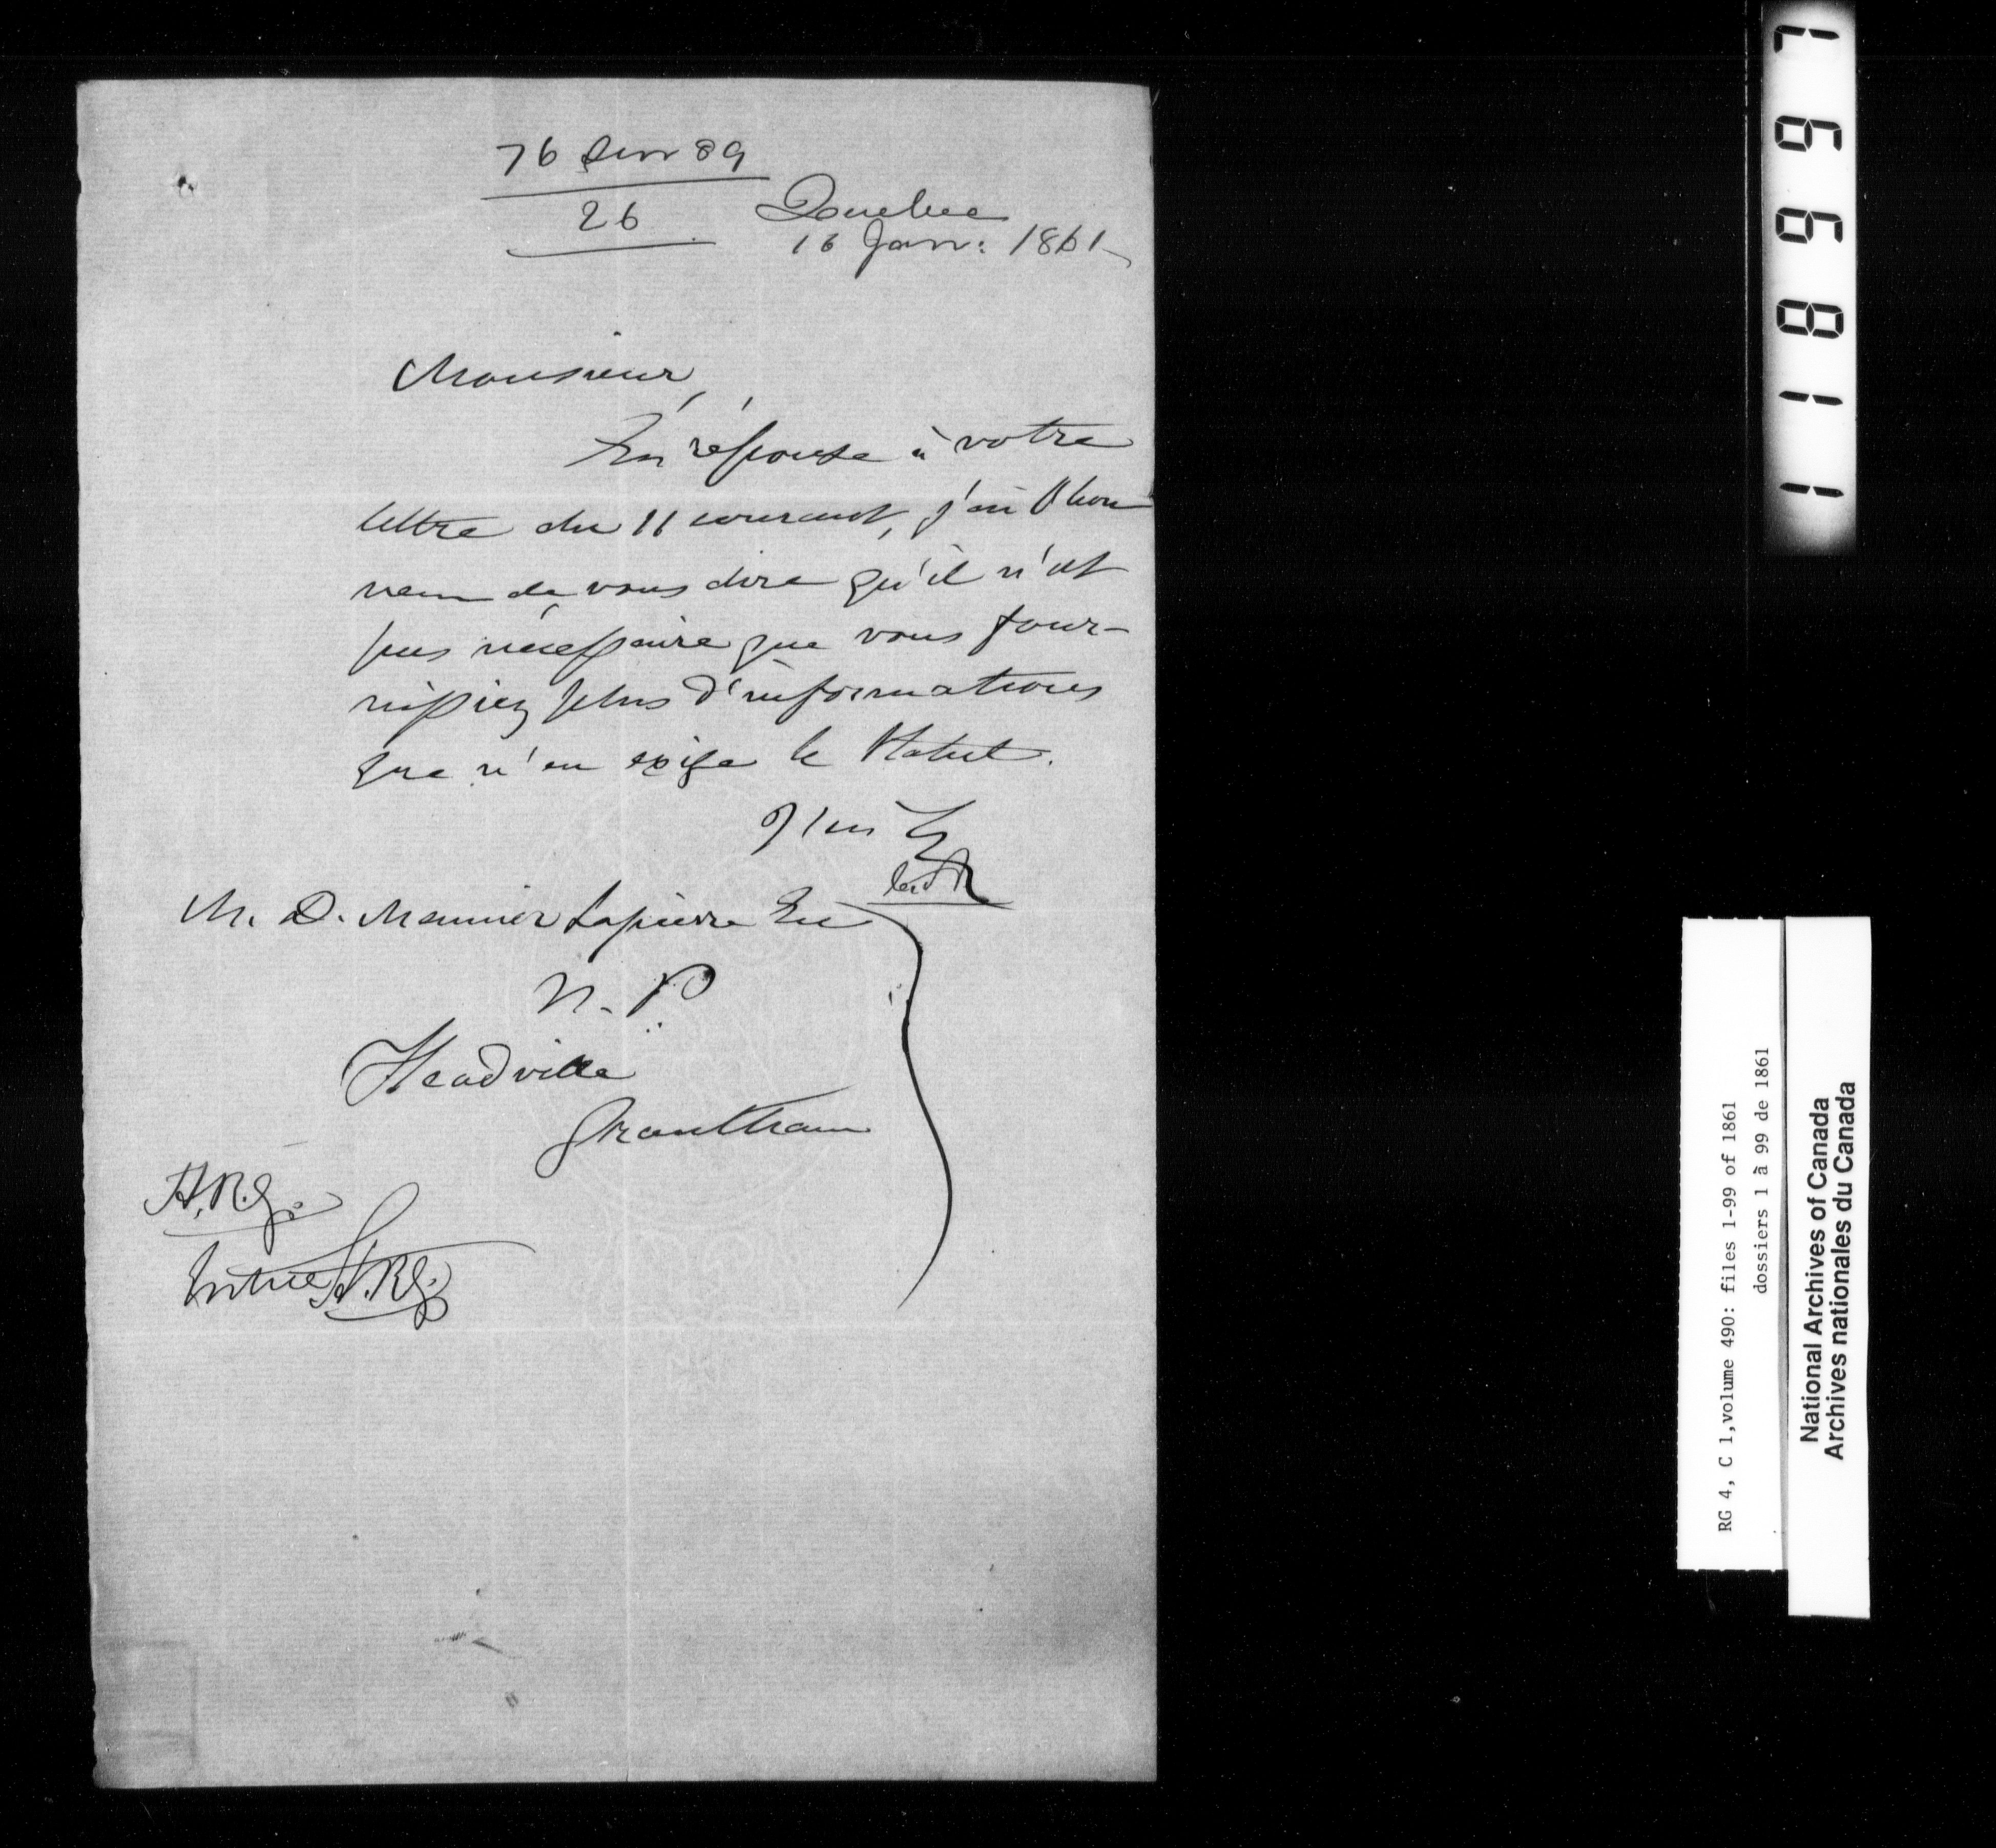 76 sur 89
26
Quebec
16 Janr: 1861
Monsieur,
En réponse à votre
lettre du 11 courant, j'ai l'hon
neur de vous dire qu'il n'est
pas nécessaire que vous four-
nissiez plus d'informations
que n'en exige le Statut.
J'ai
M. D. Meunier Lapierre Ecr
N. P
Headville
Grantham
1 1 8 6 6 7
RG 4, C 1,volume 490: files 1-99 of 1861
dossiers 1 à 99 de 1861
National Archives of Canada
Archives nationales du Canada